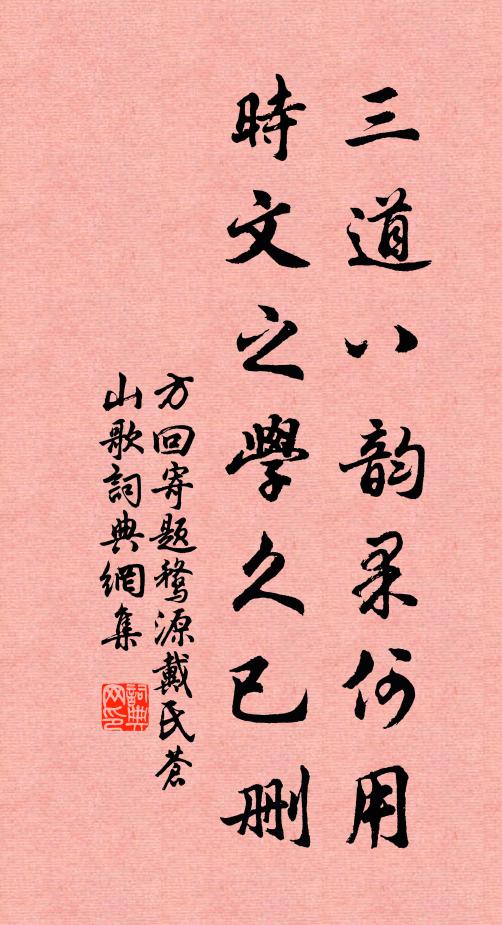 三道八韵果何用
時文之學久已刪
方回寄題婺源戴氏蒼
山歌詞典網集
詞典
网印